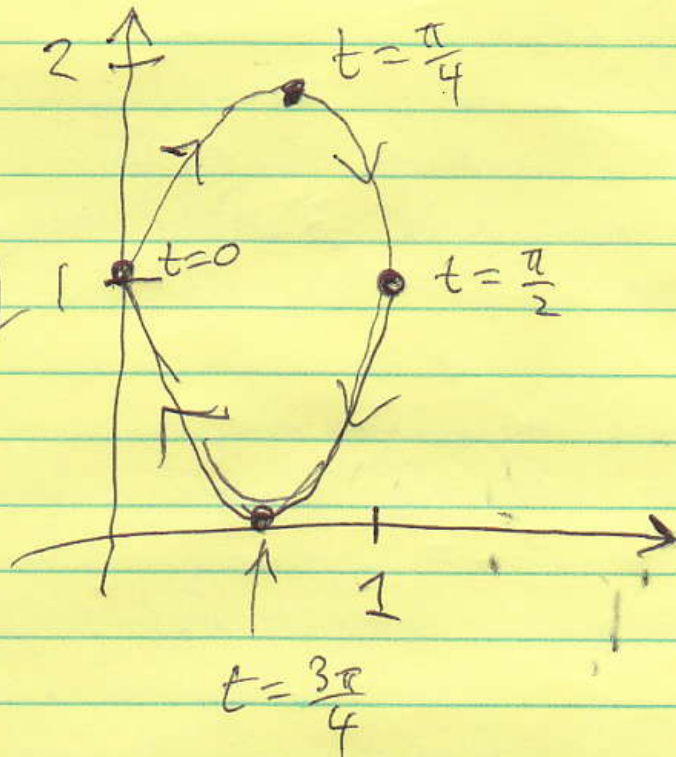 2
t = π/4
1
t=0
t = π/2
1
t = 3π/4